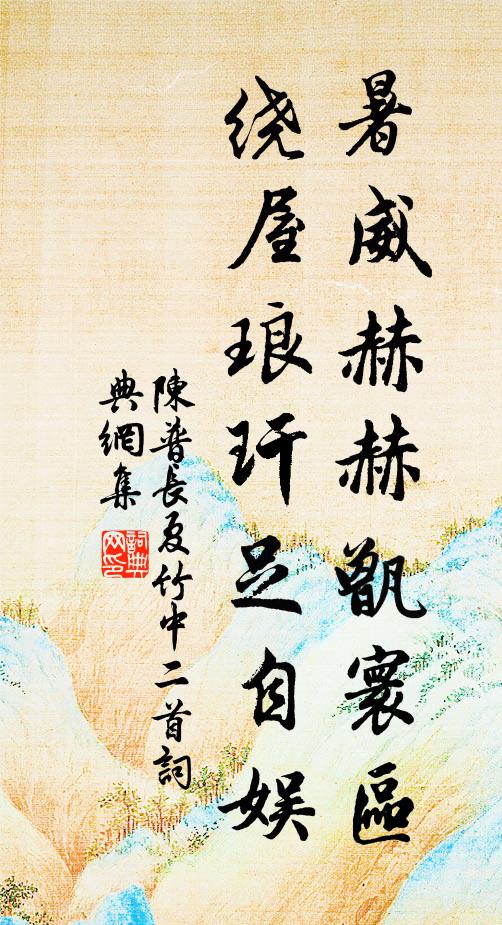 暑威赫赫甑寰區
绕屋琅玕足自娱
陳普長夏竹中二首詞
典網集
詞典网印